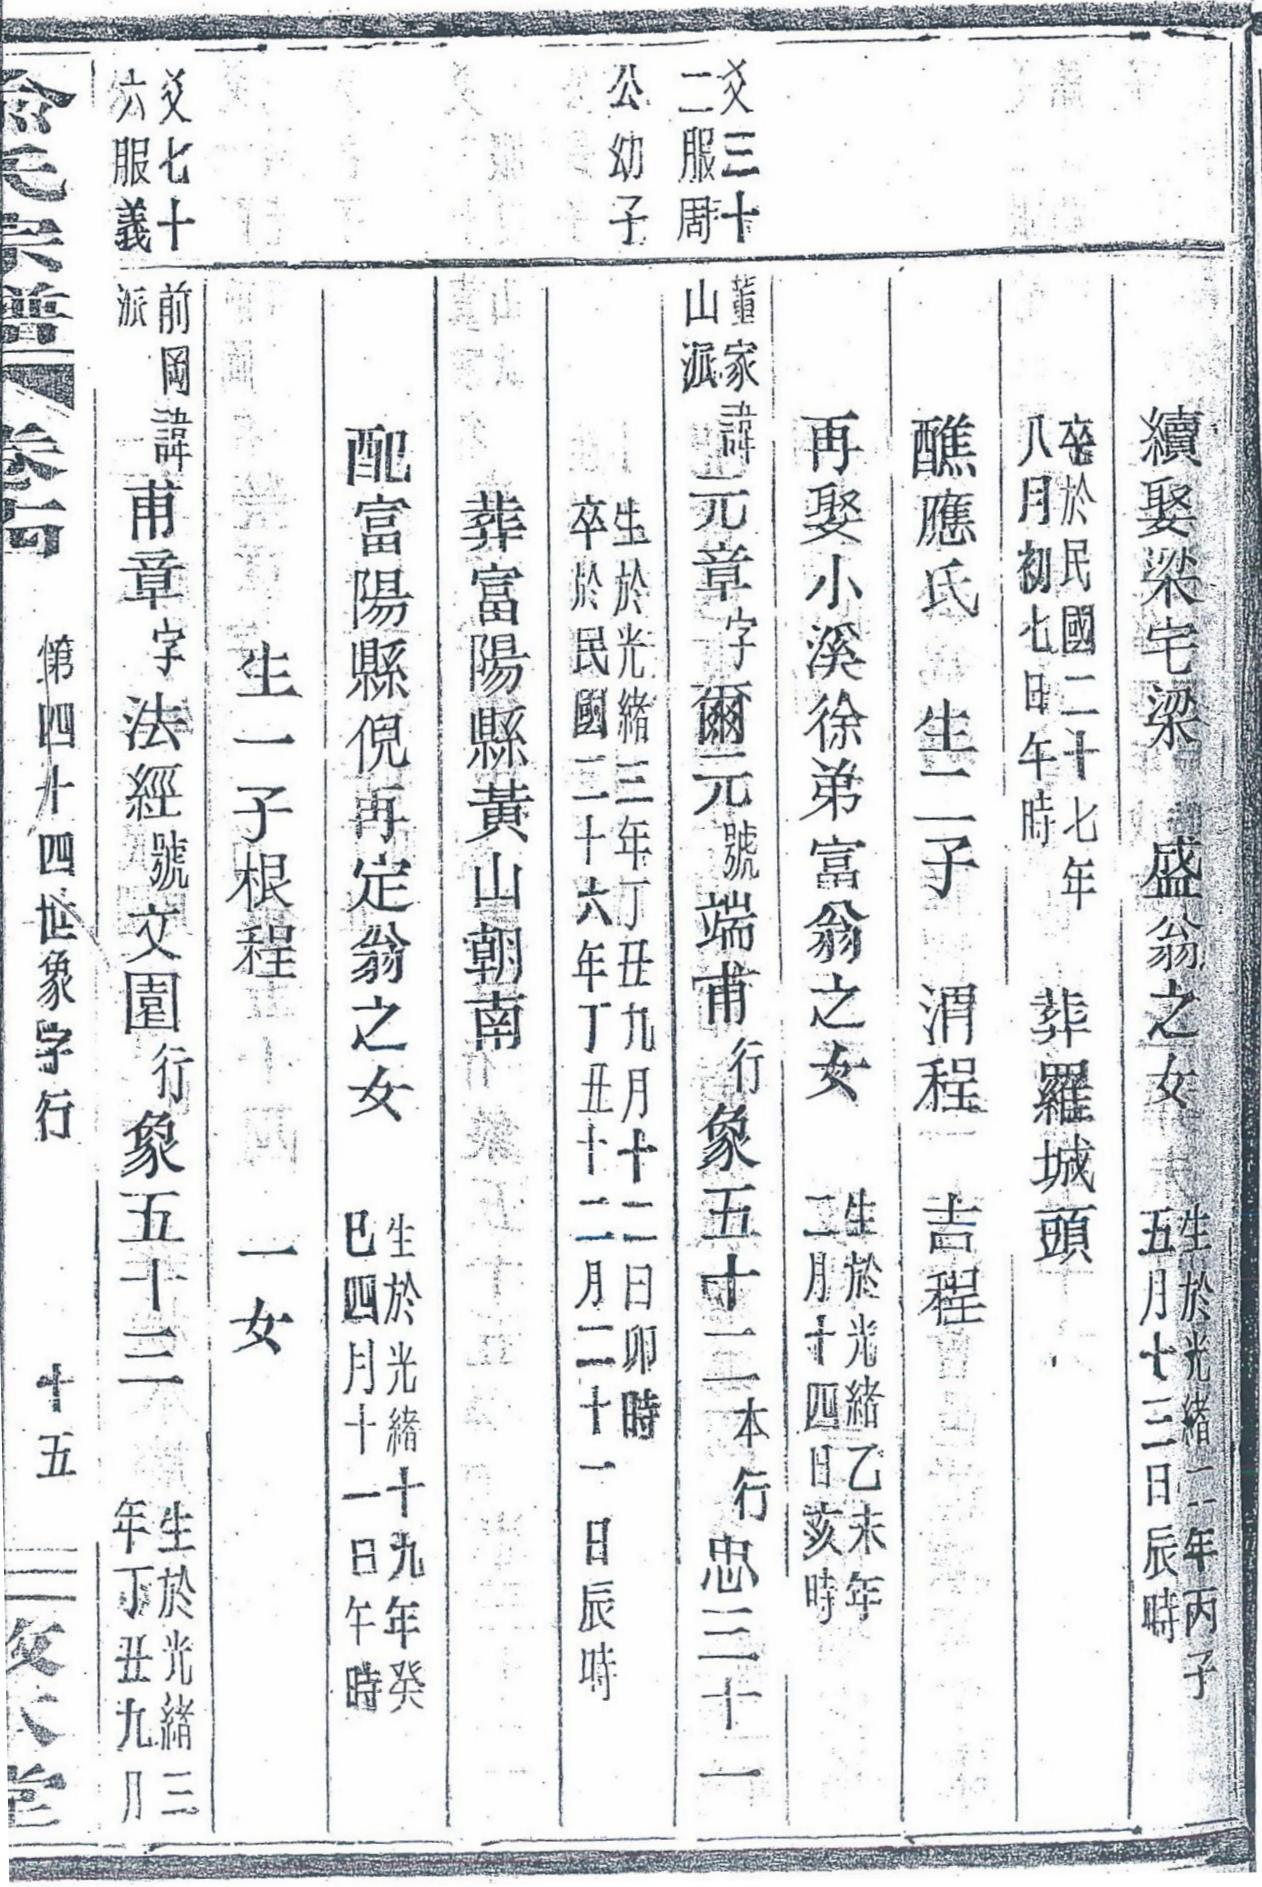 續娶梁宅梁 盛翁之女 生於光緒二年丙子
五月十三日辰時
卒於民國二十七年
八月初七日午時 葬羅城頭
醮應氏 生二子 渭程 吉程
再娶小溪徐弟富翁之女 生於光緒乙未年
二月十四日亥時
爻三十
二服周
公幼子
董家
山派
諱元章字爾元號端甫行象五十二本行忠三十一
生於光緒三年丁丑九月十二日卯時
卒於民國二十六年丁丑十二月二十一日辰時
葬富陽縣黃山朝南
配富陽縣倪再定翁之女 生於光緒十九年癸
巳四月十一日午時
生一子根程 一女
爻七十
六服義
前岡
派
諱甫章字法經號文園行象五十三 生於光緒三
年丁丑九月
俞氏宗譜 卷 第四十四世象字行 十五 敦本堂